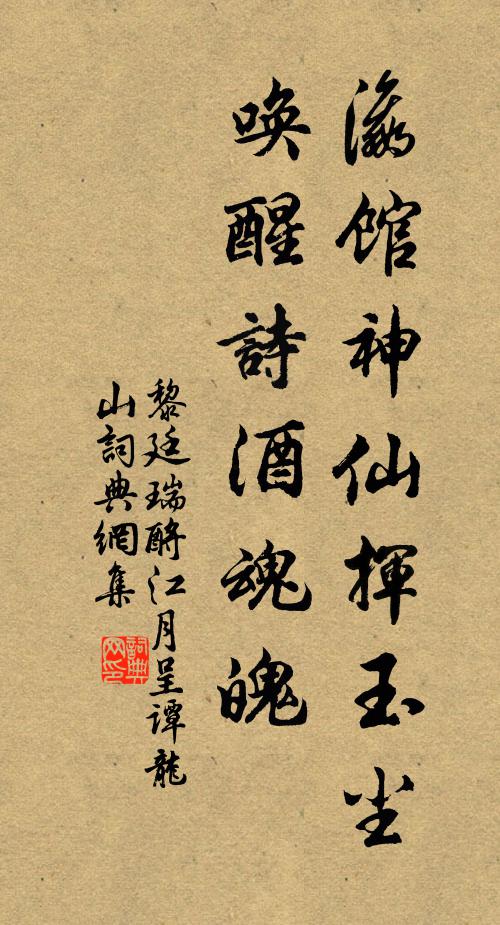 瀛館神仙揮玉尘
喚醒詩酒魂魄
黎廷瑞酹江月呈谭龍
山詞典網集
詞典网印